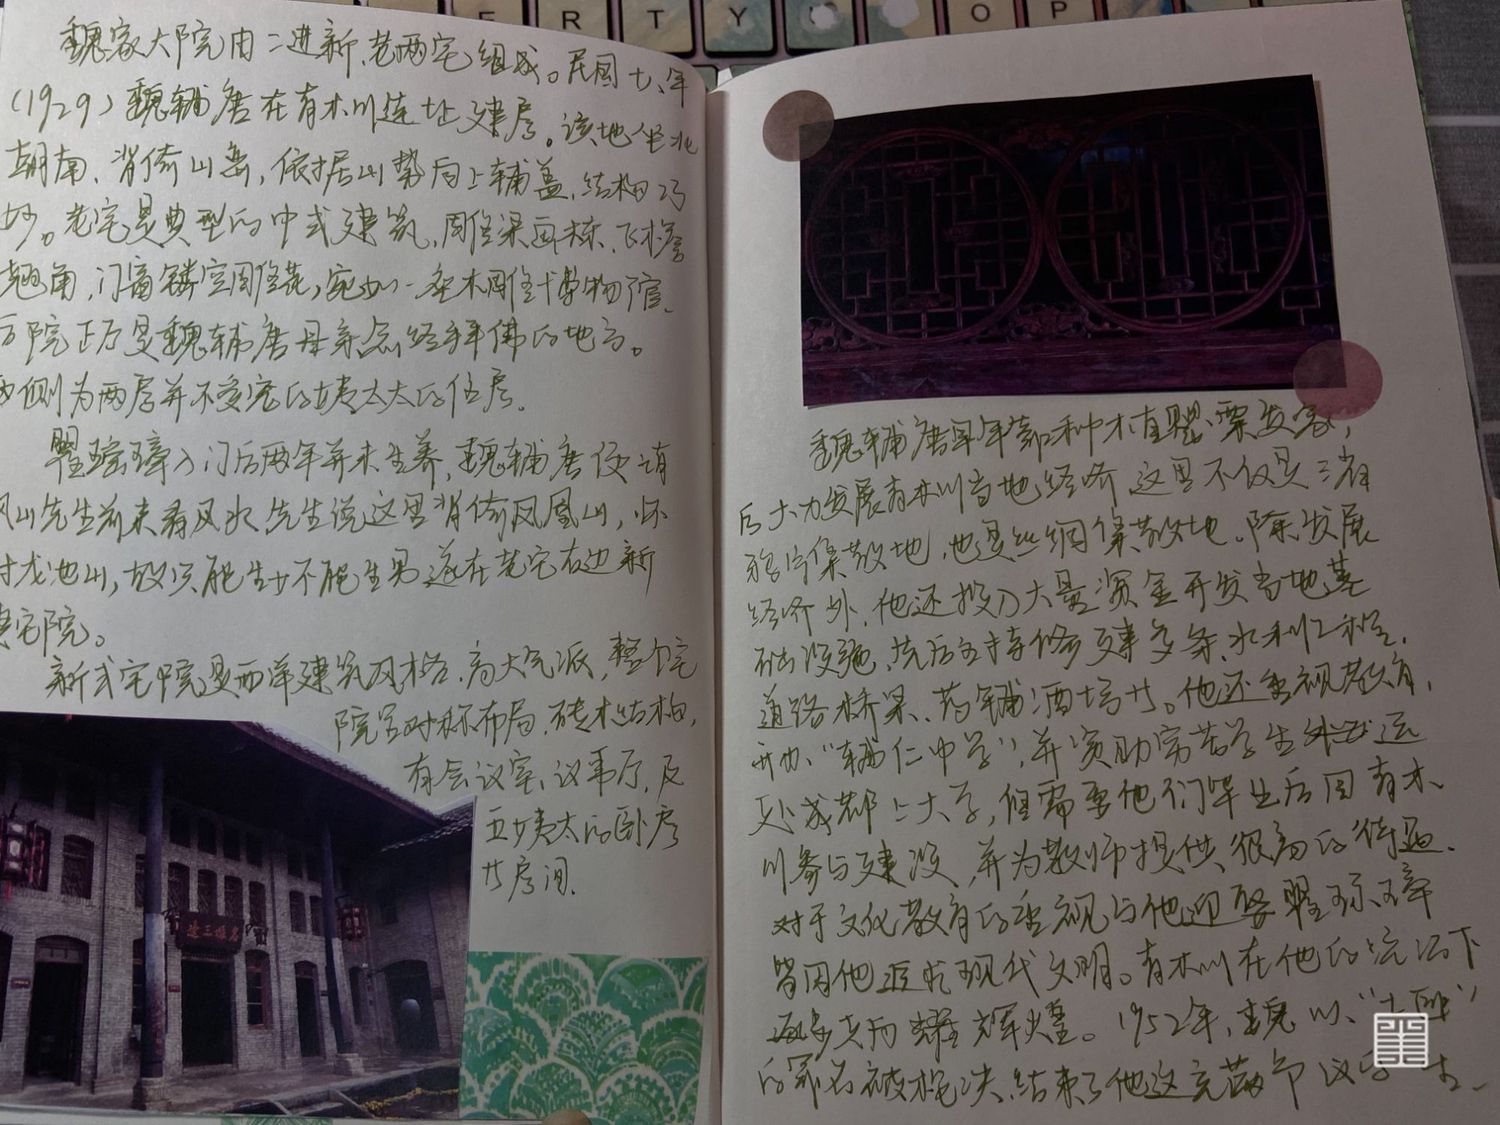 E R T Y O P
魏家大院由二进新、老两宅组成。民国十八年
(1929)魏辅唐在青木川选址建房。该地坐北
朝南、背倚山峦,依据山势向上铺盖,结构巧
妙。老宅是典型的中式建筑,雕梁画栋、飞檐
翘角,门窗镂空雕花,宛如一座木雕博物馆。
院正房是魏辅唐母亲念经拜佛的地方。
侧为两房并不受宠的姨太太的住房。
瞿瑶璋入门后两年并未生养,魏辅唐便请
风山先生前来看风水,先生说这里背倚凤凰山,
对龙池山,故只能生女不能生男,遂在老宅右边新
建宅院。
新式宅院是西洋建筑风格,高大气派,整个宅
院呈对称布局,砖木结构,
有会议室、议事厅,及
五姨太的卧房
等房间。
名扬三边
魏辅唐早年靠种植罂粟发家,
后大力发展青木川当地经济,这里不仅是三省
鸦片集散地,也是丝绸集散地。除发展
经济外,他还投入大量资金开发当地基
础设施,先后主持修建多条水利工程,
道路桥梁、药铺酒坊等。他还重视教育,
开办“辅仁中学”,并资助穷苦学生远
赴成都上大学,但需要他们毕业后回青木
川参与建设,并为教师提供很高的待遇。
对于文化教育的重视与他迎娶瞿瑶璋
皆因他追求现代文明。青木川在他的统治下
耀辉煌。1952年,魏以“土匪”
的罪名被枪决,结束了他这充满争议的一生